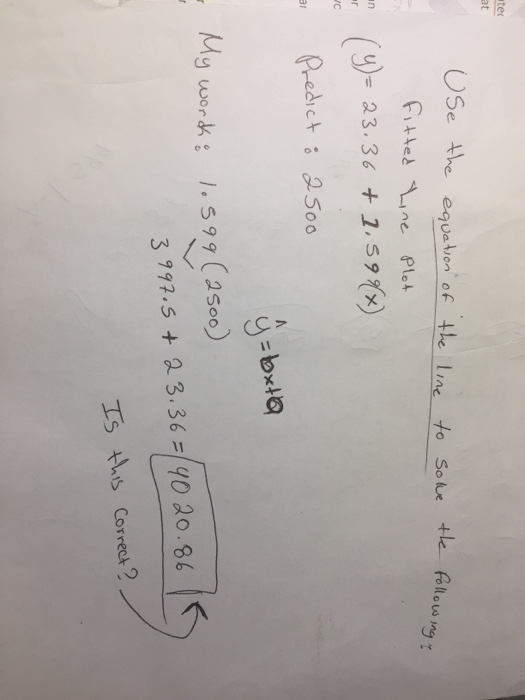 Use the equation of the line to solve the following:
Fitted Line Plot
(y) = 23.36 + 1.599(x)
Predict: 2500
ŷ = bx+a
My work: 1.599(2500)
3997.5 + 23.36 = 4020.86
Is this correct?